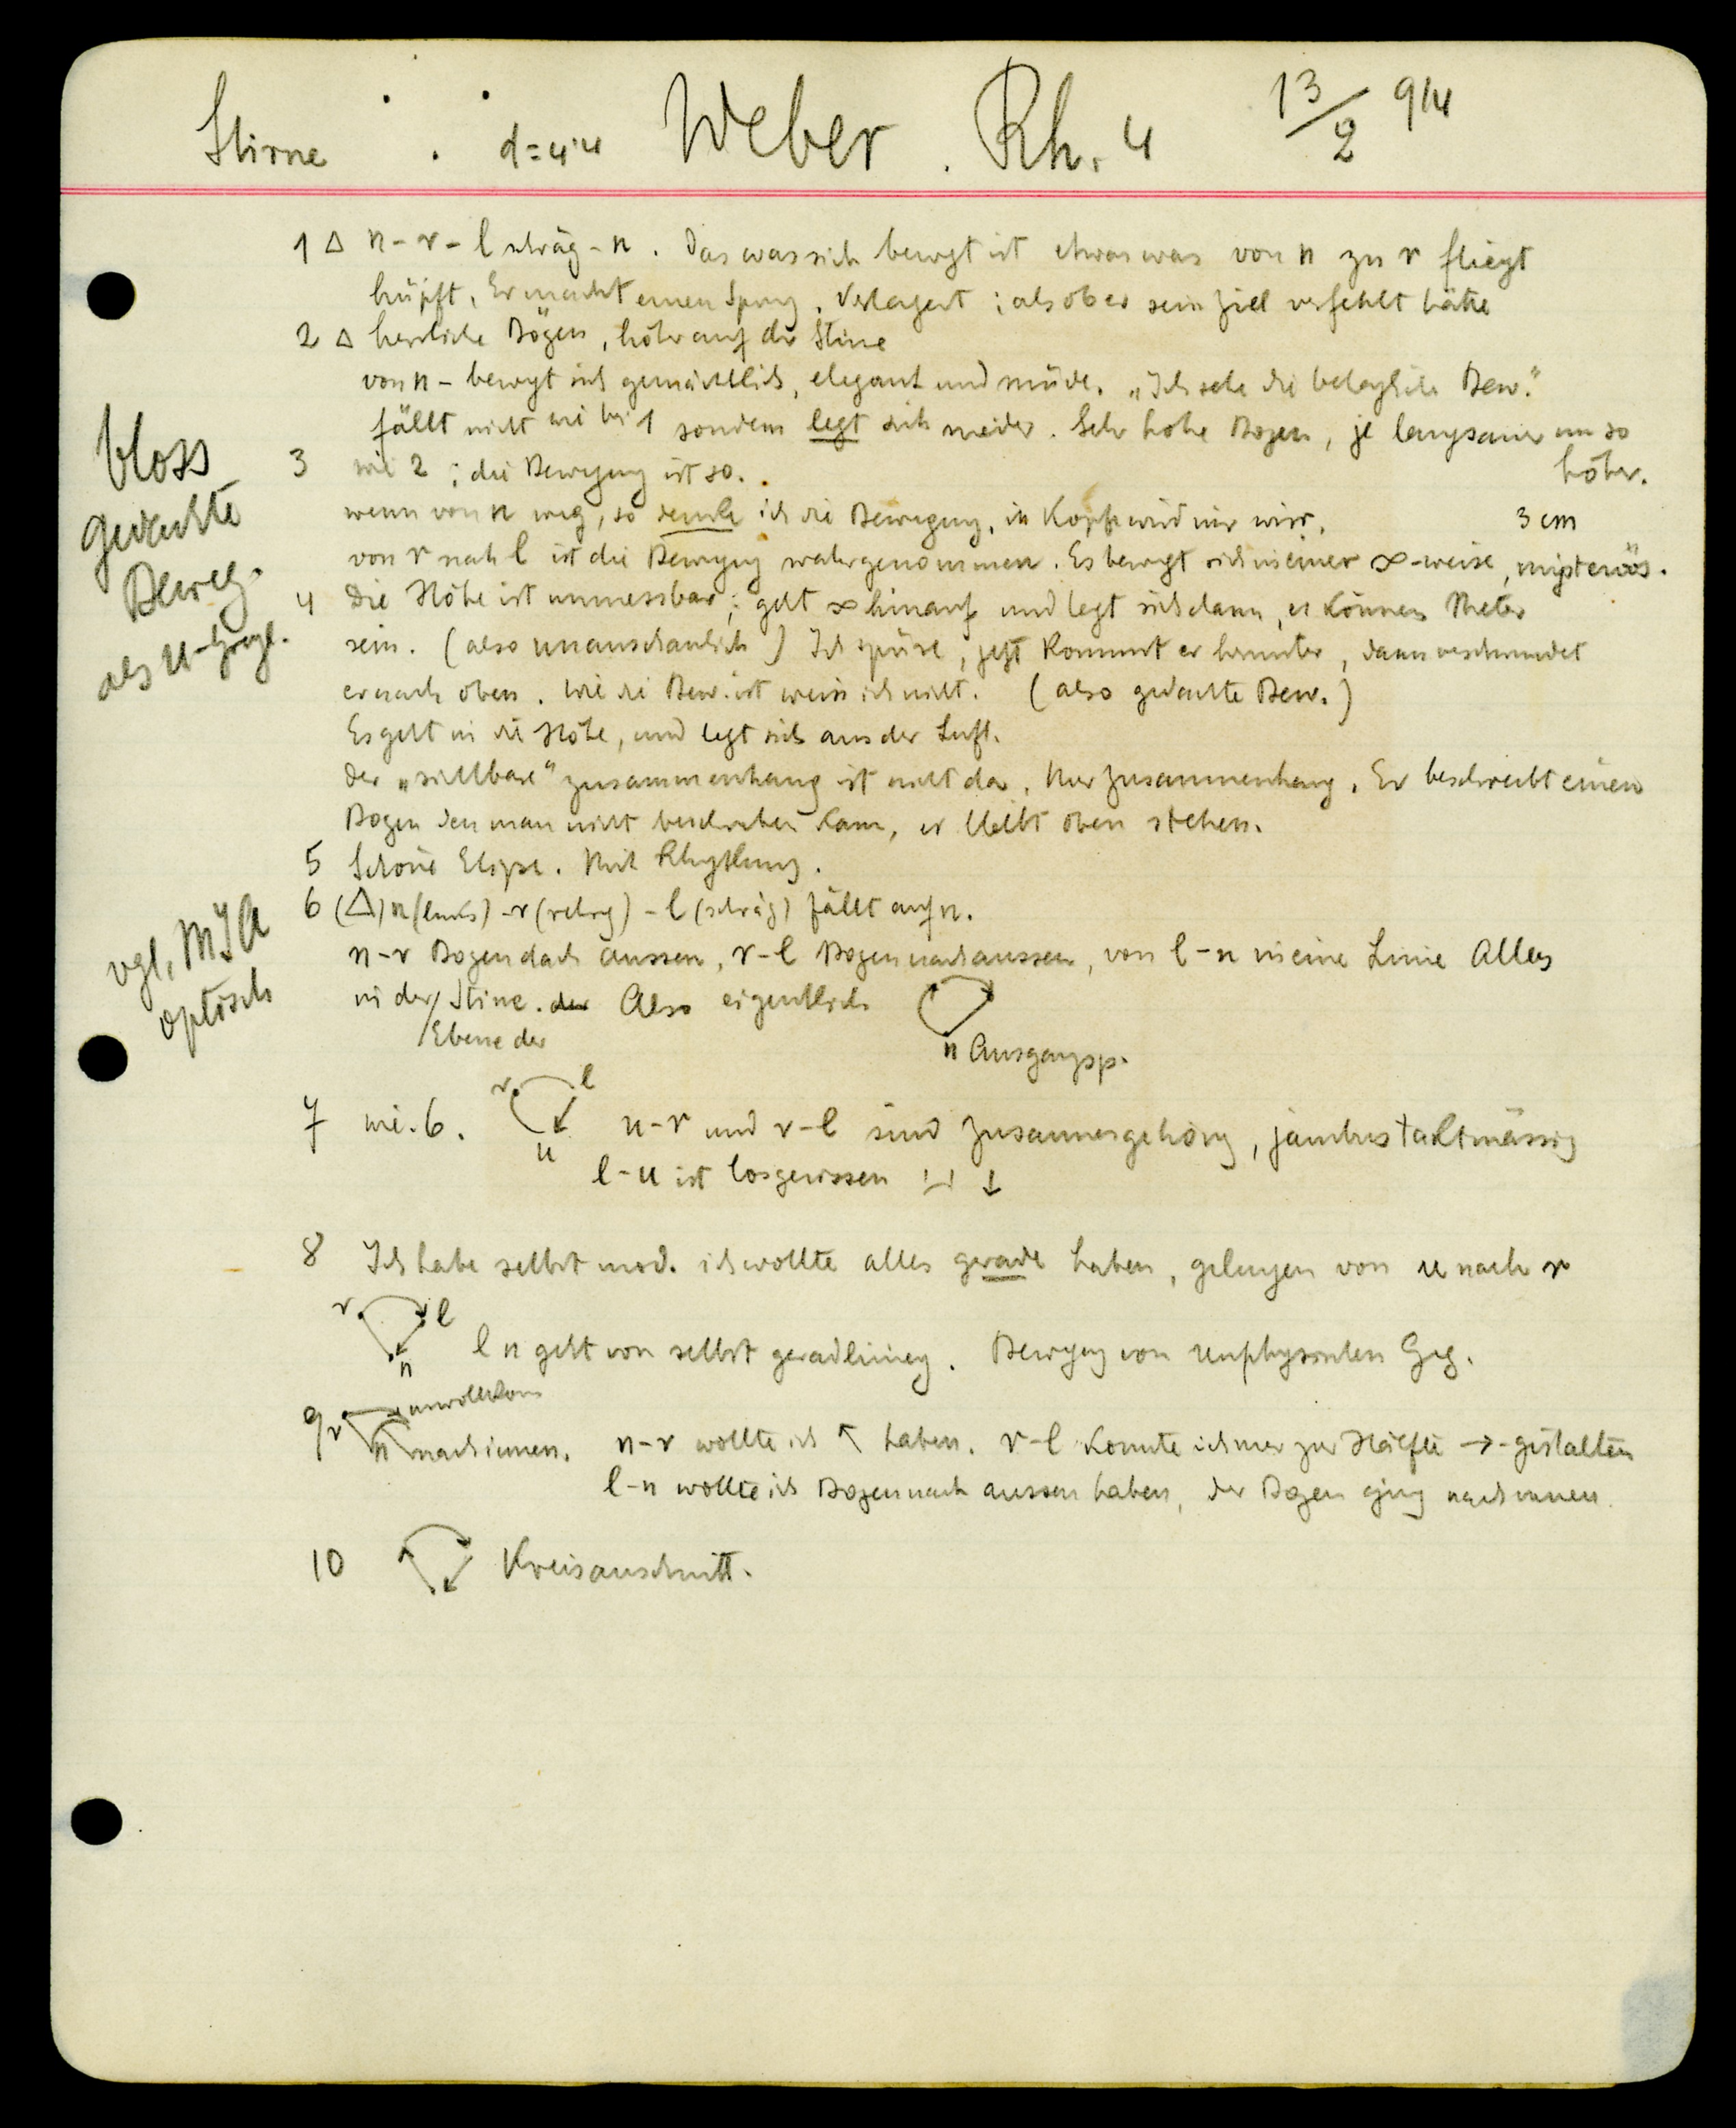 Stirne . d=4'4 Weber . Rh. 4 13/2 914
1 Δ n - r - l schräg - n . Das was sich bewegt ist etwas was von n zu r fliegt
hüpft, Er macht einen Sprung, verlagert ; als ob er sein Ziel verfehlt hätte
2 Δ herrliche Bögen, höher auf der Stirne
von n - bewegt sich gemächlich, elegant und müde. „Ich sehe die behagliche Bew."
fällt nicht wie bei 1 sondern legt sich nieder. Sehr hohe Bogen, je langsamer um so
höher.
3 wie 2 ; die Bewegung ist so.
wenn von n weg, so denke ich die Bewegung, im Kopf wird mir wirr. 3 cm
von r nach l ist die Bewegung wahrgenommen. Es bewegt sich in einer ∞-weise, misteriös.
bloss
gedachte
Beweg.
als
4 Die Höhe ist unmessbar ; geht ∞ hinauf und legt sich dann, es können Meter
sein. (also unanschaulich) Ich spüre, jetzt kommt er herunter, dann verschwindet
er nach oben. Wie die Bew. ist weiss ich nicht. (also gedachte Bew.)
Es geht in die Höhe, und legt sich aus der Luft.
Der „sichtbare" Zusammenhang ist nicht da. Nur Zusammenhang. Er beschreibt einen
Bogen den man nicht beschreiben kann, er bleibt oben stehen.
5 Schöne Elipse. Mit Rhythmus.
6 (Δ) n (links) - r (schrg) - l (schräg) fällt auf n.
n-r Bogen nach aussen, r-l Bogen nach aussen, von l-n in eine Linie Alles
in der Stirne. Also eigentlich
Ebene der
n Ausgangsp.
vgl.
optisch
7 wie 6. r l u u-r und r-l sind zusammengehörig, jambus taktmässig
l-u ist losgerissen ↓
8 Ich habe selbst mod. ich wollte alles gerade haben, gelungen von u nach r
r l n l n geht von selbst geradlinig. Bewegung von unphysischen Geg.
9 r unvollkom
n nach innen. n-r wollte ich ↖ haben. r-l konnte ich nur zur Hälfte → gestalten
l-n wollte ich Bogen nach aussen haben, der Bogen ging nach innen.
10 Kreisausschnitt.